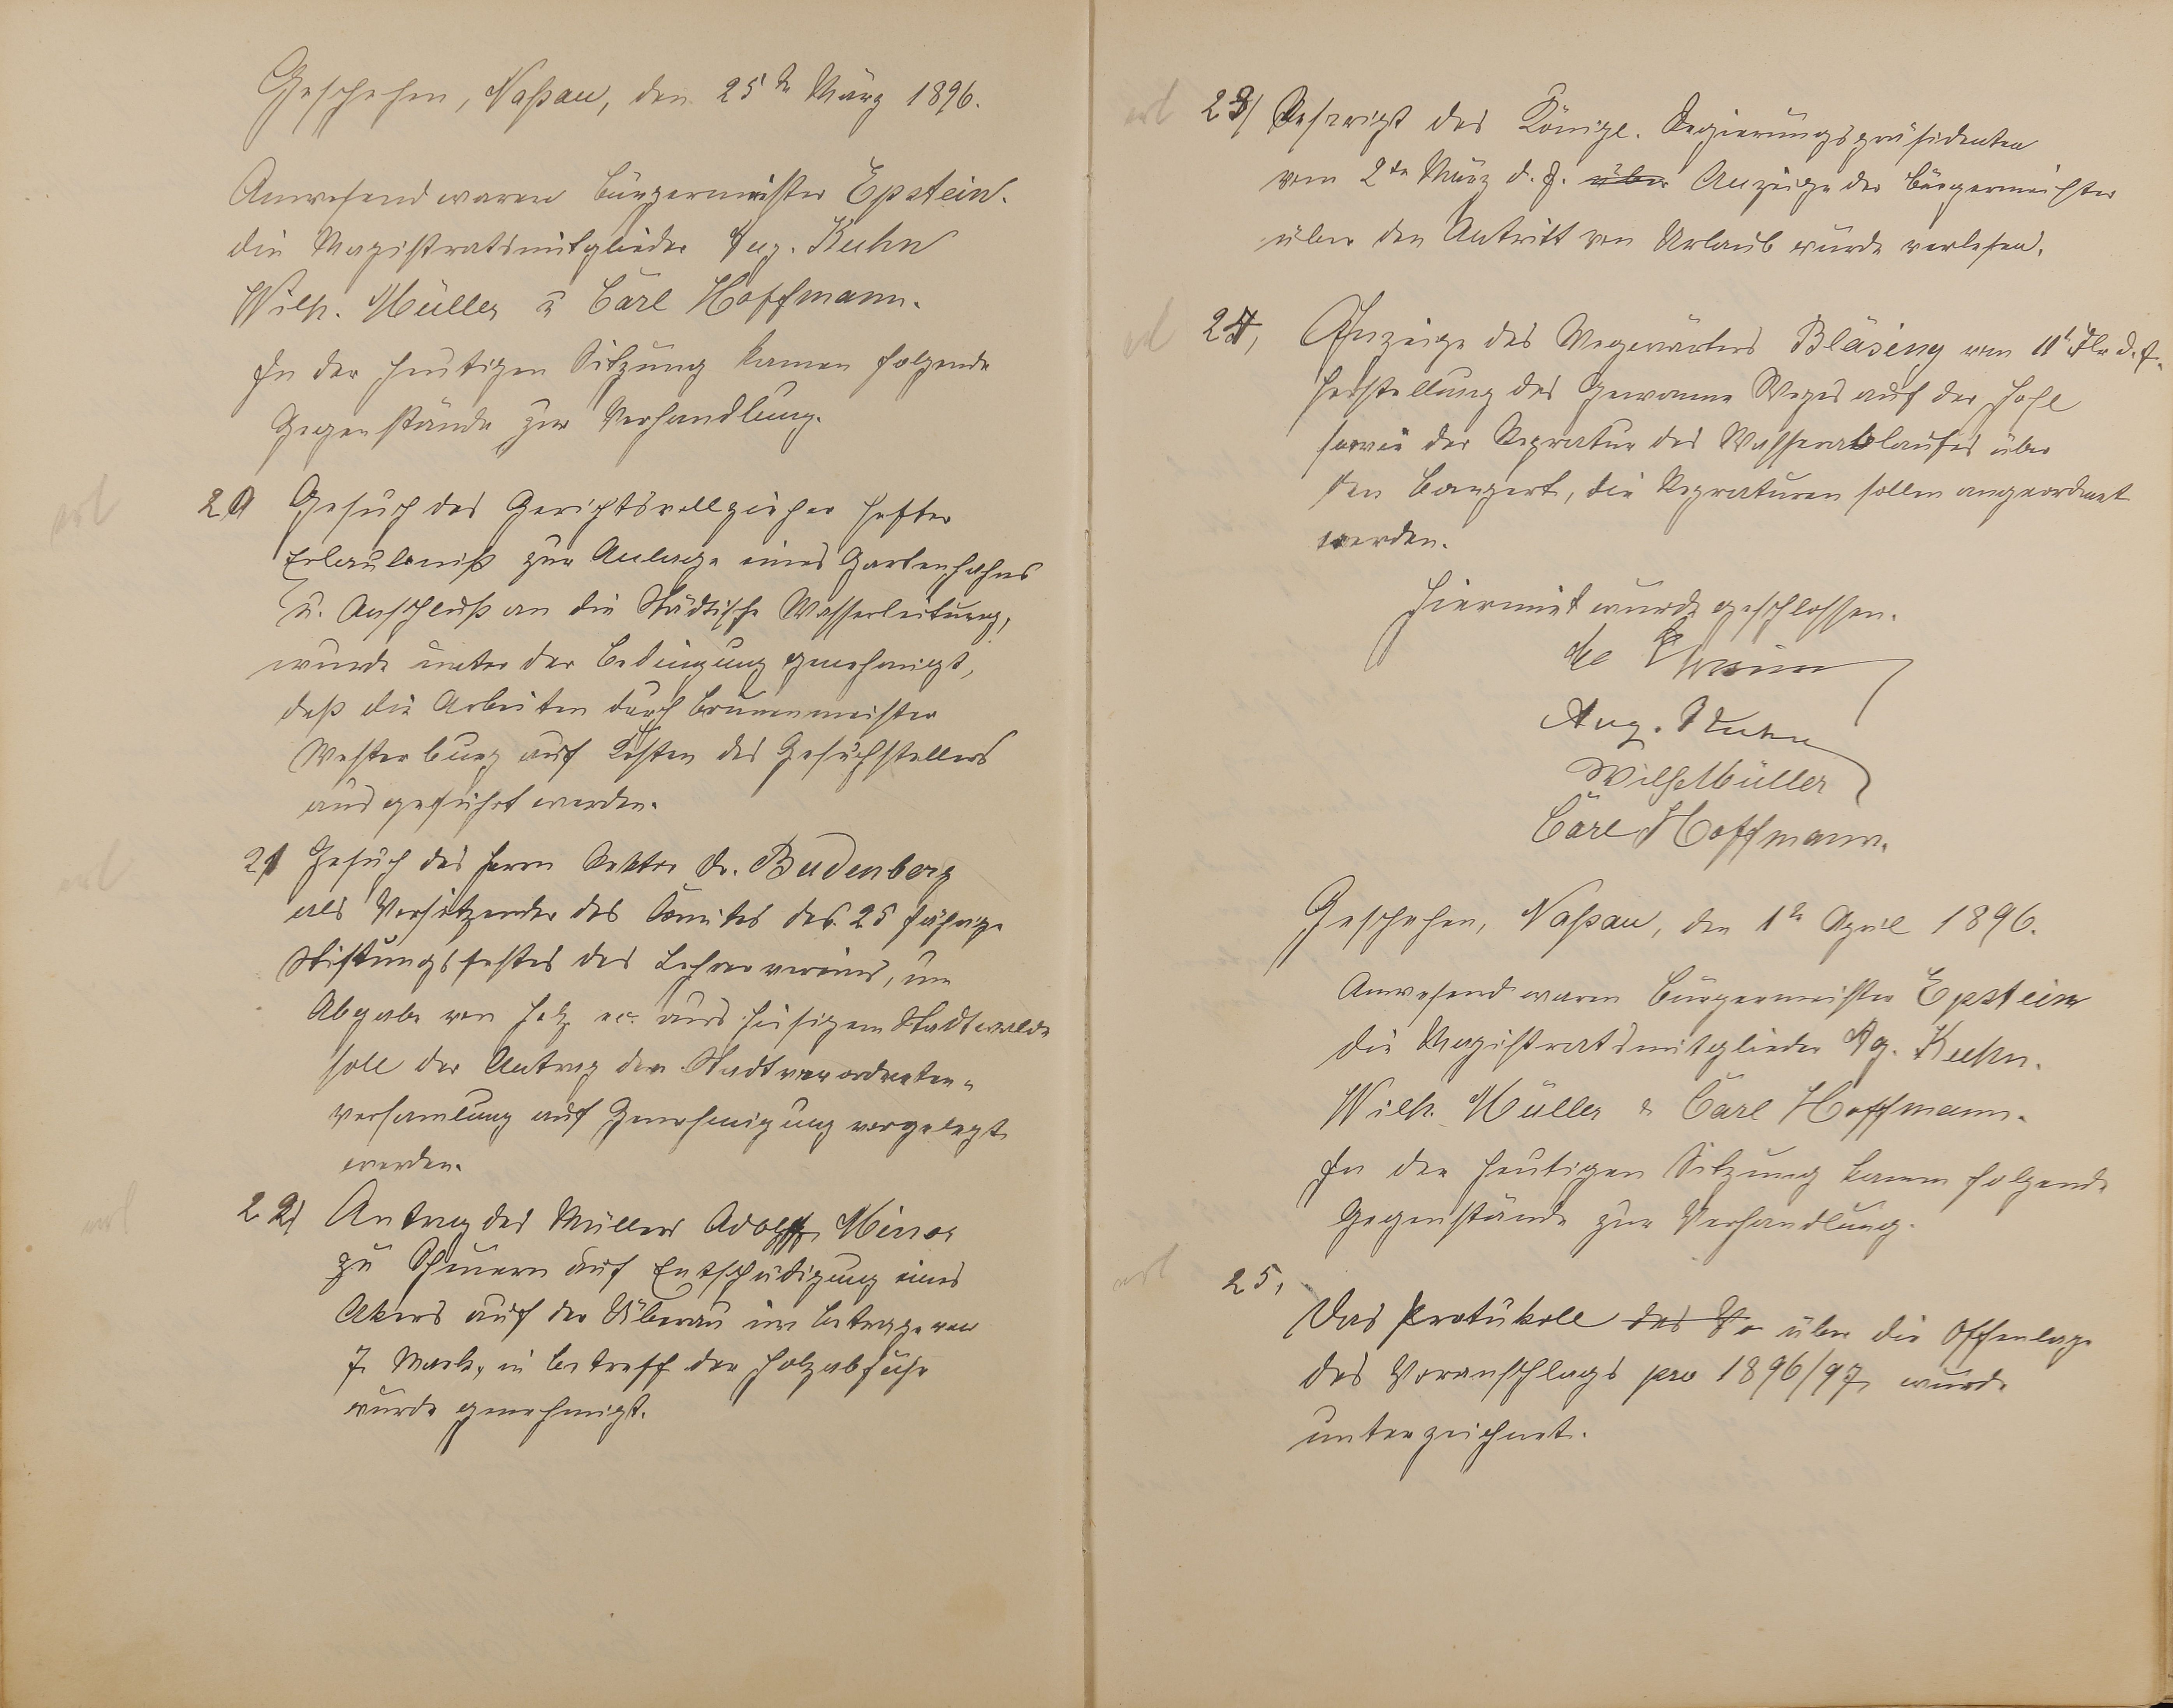 Geschehen, Naßau, den 25te März 1896.
Anwesend waren Bürgermeister Epstein.
die Magistratsmitglieder Aug. Kuhn
Wilh. Müller u Carl Hoffmann.
In der heutigen Sitzung kamen folgende
Gegenstände zur Verhandlung.
erl
20 Gesuch des Gerichtsvollzieher Hefter
Erlaubniß zur Anlage eines Gartenhahns
u. Anschluß an die Städtische Wasserleitung,
wurde unter der Bedingung genehmigt,
daß die Arbeiten durch Brunnenmeister
Westerburg auf Kosten des Gesuchstellers
ausgeführt werden.
erl
21 Gesuch des Herrn Rektor Dr. Budenberg
als Vorsitzender des Comites des 25 jährige
Stiftungsfestes des Lehrervereins, um
Abgabe von Holz ec. aus hiesigem Stadtwalde
soll der Antrag der Stadtverordneten-
versamlung auf Genehmigung vorgelegt
werden.
erl
22) Antrag des Müllers Adolf Minor
zu Scheuern auf Entschädigung eines
Akers auf der Überau im Betrage von
7 Mark, in betreff der Holzabfuhr
wurde genehmigt.
erl
23) Rescript des Königl. Regierungspräsidenten
vom 2te März d. J. über Anzeige der Bürgermeister
über den Antritt von Urlaub wurde verlesen.
erl
24, Anzeige des Wegewärters Bläsing vom 11t d. J.
Herstellung des Gewanne Weges auf der Hohl
sowie der Repratur des Wasserablaufes über
den Bangert, die Repraturen sollen angeordnet
werden.
Hiermit wurde geschlossen.
Epstein
Aug. Kuhn
Wilh Müller
Carl Hoffmann.
Geschehen, Naßau, den 1te April 1896.
Anwesend waren Bürgermeister Epstein
die Magistratsmitglieder Ag. Kuhn.
Wilh. Müller & Carl Hoffmann.
In der heutigen Sitzung kamen folgende
Gegenstände zur Verhandlung.
erl
25, Das Protukoll des über die Offenlage
des Voranschlags pro 1896/97 wurde
unterzeichnet.